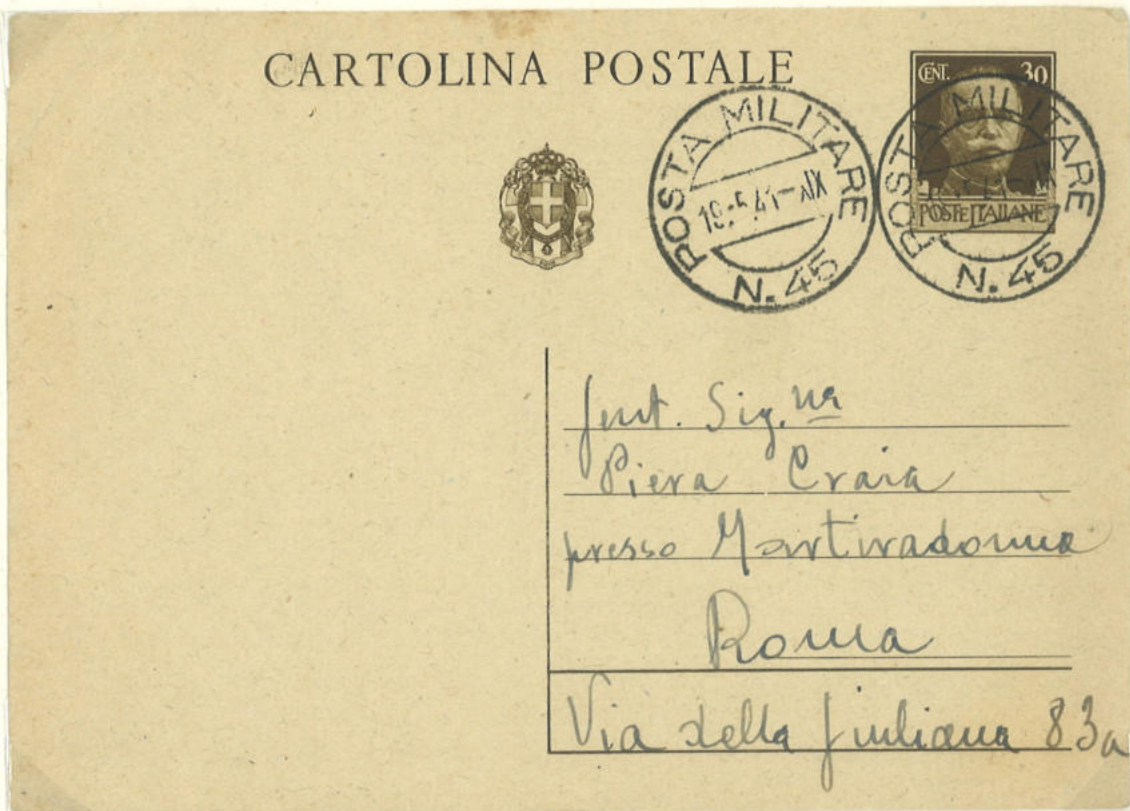 CARTOLINA POSTALE
CENT. 30
POSTE ITALIANE
POSTA MILITARE
19.5.41-XIX
N. 45
POSTA MILITARE
N. 45
Gent. Sig.na
Piera Craia
presso Martiradonna
Roma
Via della Giuliana 83a